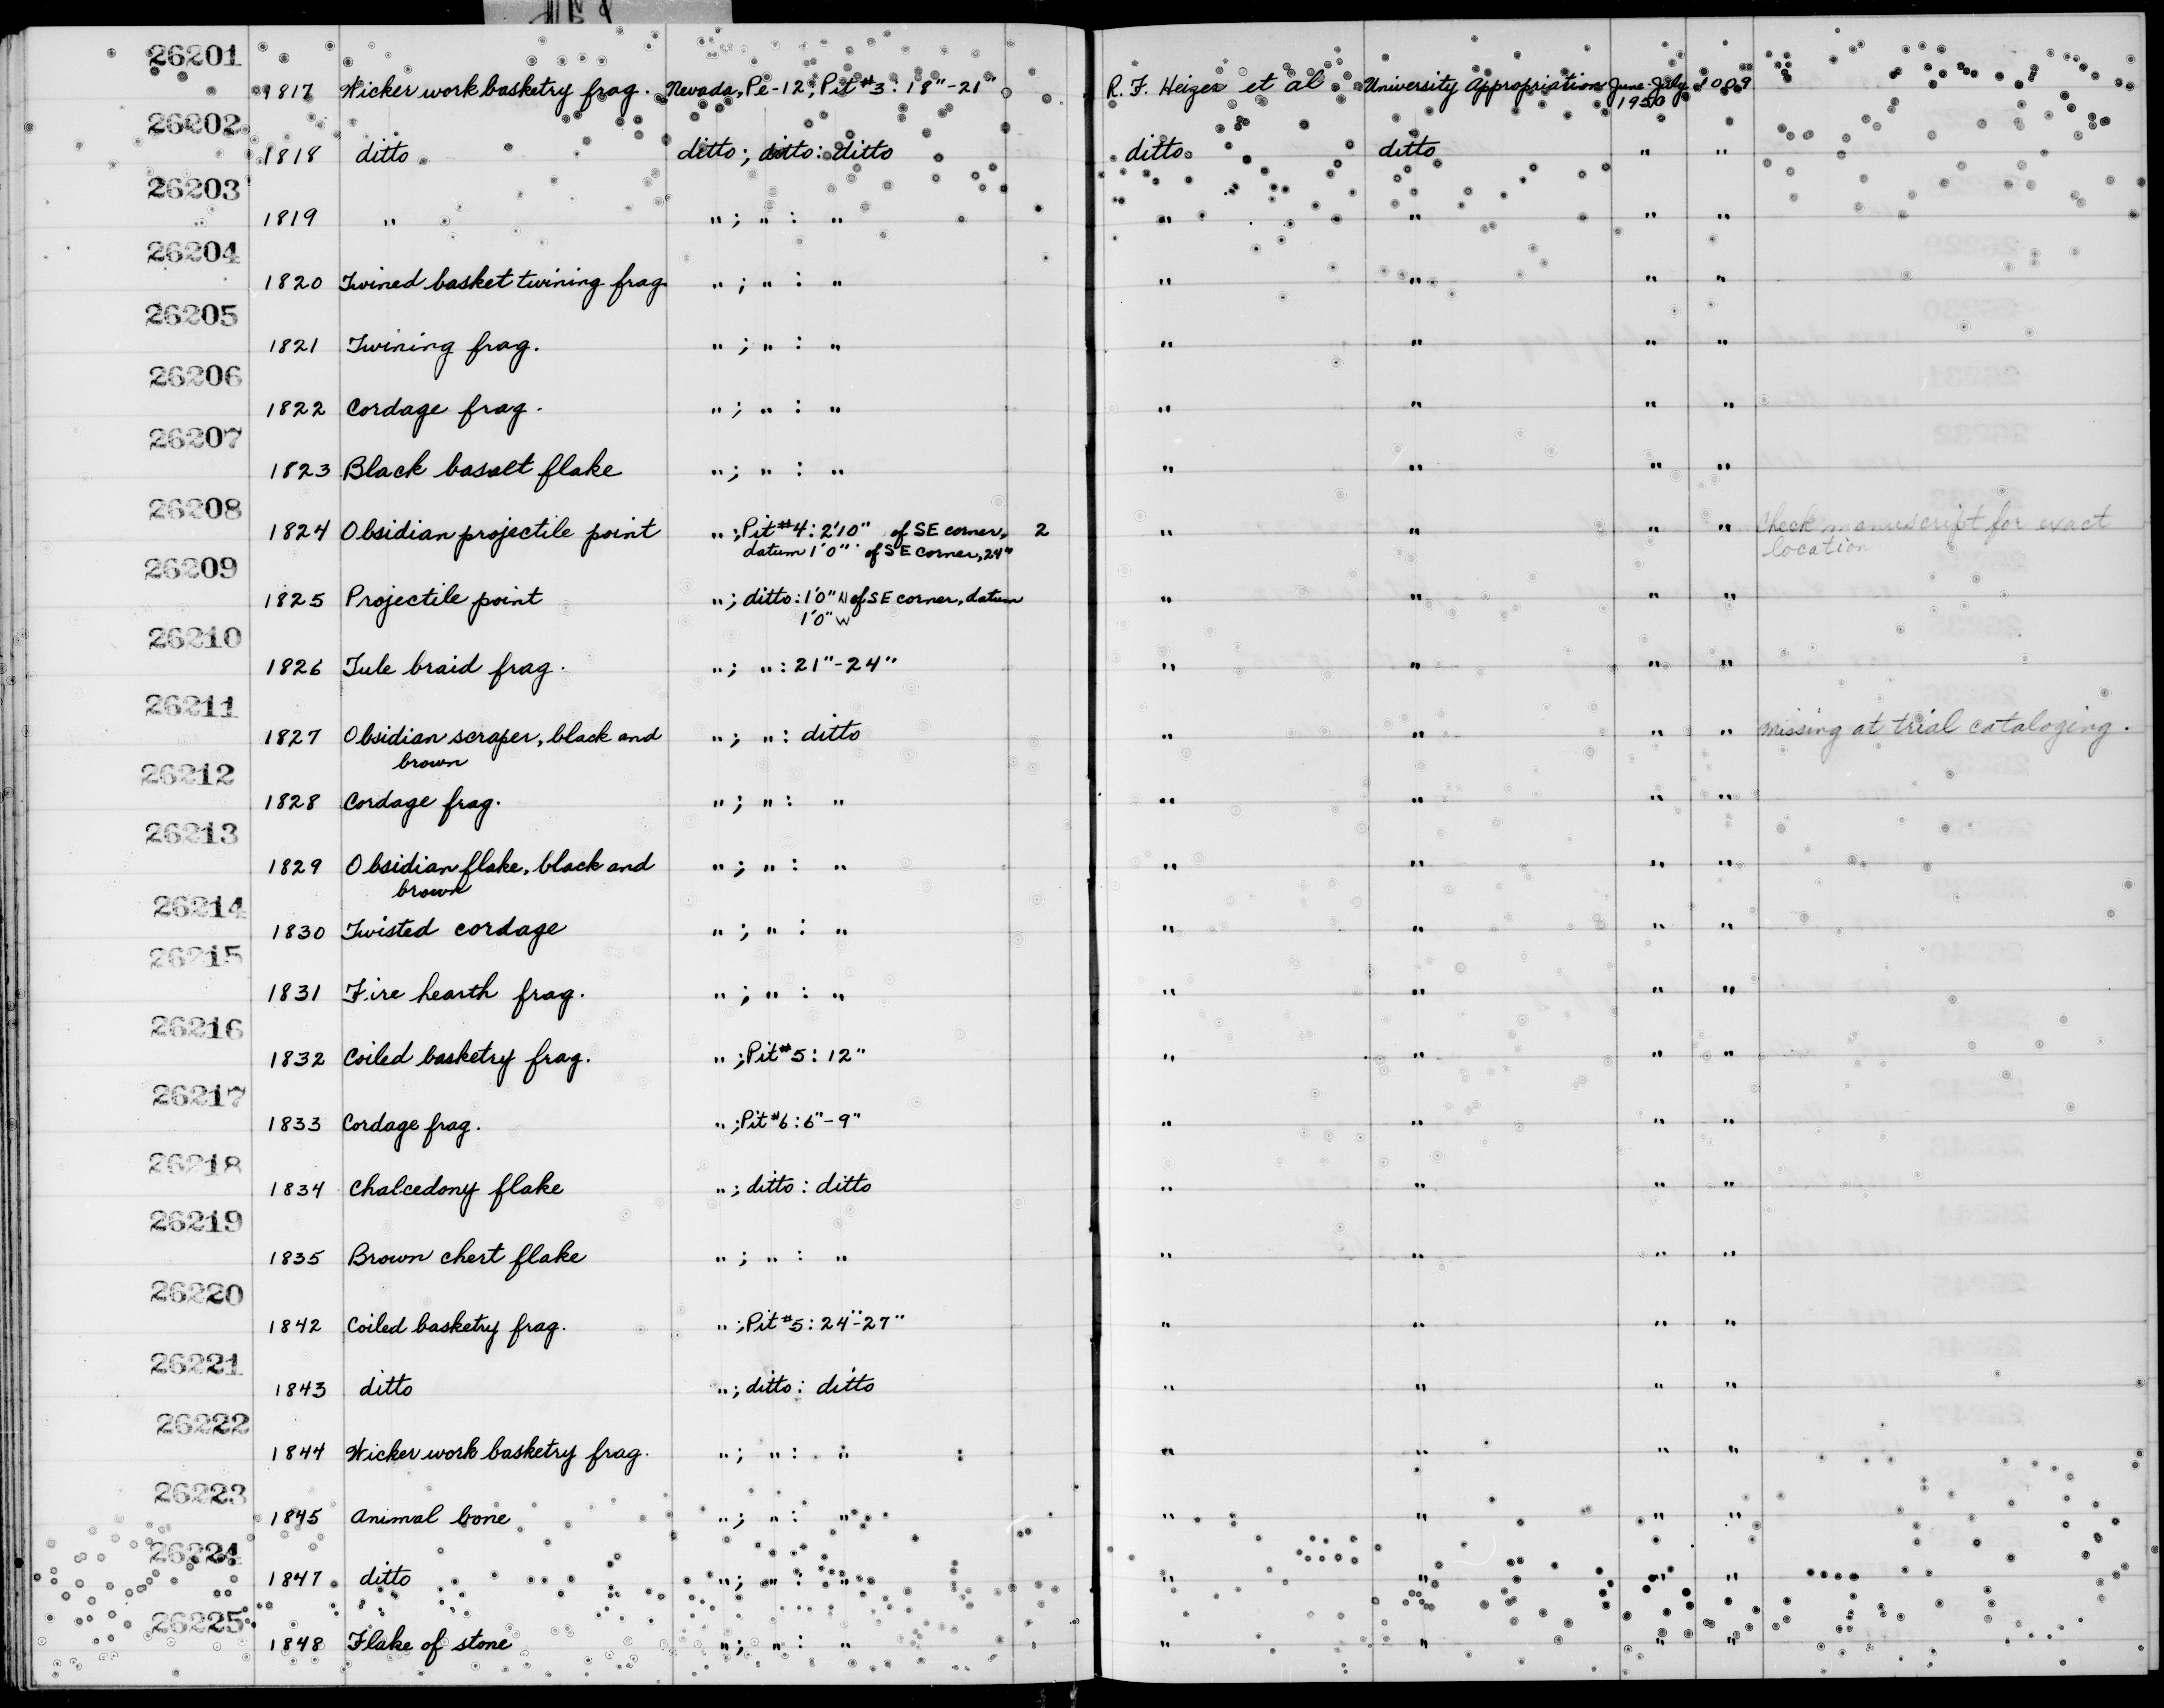 26201
1817 Wickerwork basketry frag. Nevada, Pe-12; Pit #3: 18"-21" R. F. Heizer et al University Appropriation June-July 1009
1950
26202
1818 ditto ditto; ditto: ditto ditto ditto " "
26203
1819 " "; " : " " " " "
26204
1820 Twined basket twining frag. "; " : " " " " "
26205
1821 Twining frag. "; " : " " " " "
26206
1822 Cordage frag. "; " : " " " " "
26207
1823 Black basalt flake "; " : " " " " "
26208
1824 Obsidian projectile point "; Pit #4: 2'10" of SE corner, 2 " " " " Check manuscript for exact
datum 1'0" of SE corner, 24" location
26209
1825 Projectile point "; ditto: 1'0" N of SE corner, datum " " " "
1'0" W
26210
1826 Tule braid frag. "; " : 21"-24" " " " "
26211
1827 Obsidian scraper, black and "; " : ditto " " " " missing at trial cataloging.
brown
26212
1828 Cordage frag. "; " : " " " " "
26213
1829 Obsidian flake, black and "; " : " " " " "
brown
26214
1830 Twisted cordage "; " : " " " " "
26215
1831 Fire hearth frag. "; " : " " " " "
26216
1832 Coiled basketry frag. "; Pit #5: 12" " " " "
26217
1833 Cordage frag. "; Pit #6: 6"-9" " " " "
26218
1834 Chalcedony flake "; ditto: ditto " " " "
26219
1835 Brown chert flake "; " : " " " " "
26220
1842 Coiled basketry frag. "; Pit #5: 24"-27" " " " "
26221
1843 ditto "; ditto: ditto " " " "
26222
1844 Wickerwork basketry frag. "; " : " " " " "
26223
1845 Animal bone "; " : " " " " "
26224
1847 ditto "; " : " " " " "
26225
1848 Flake of stone "; " : " " " " "